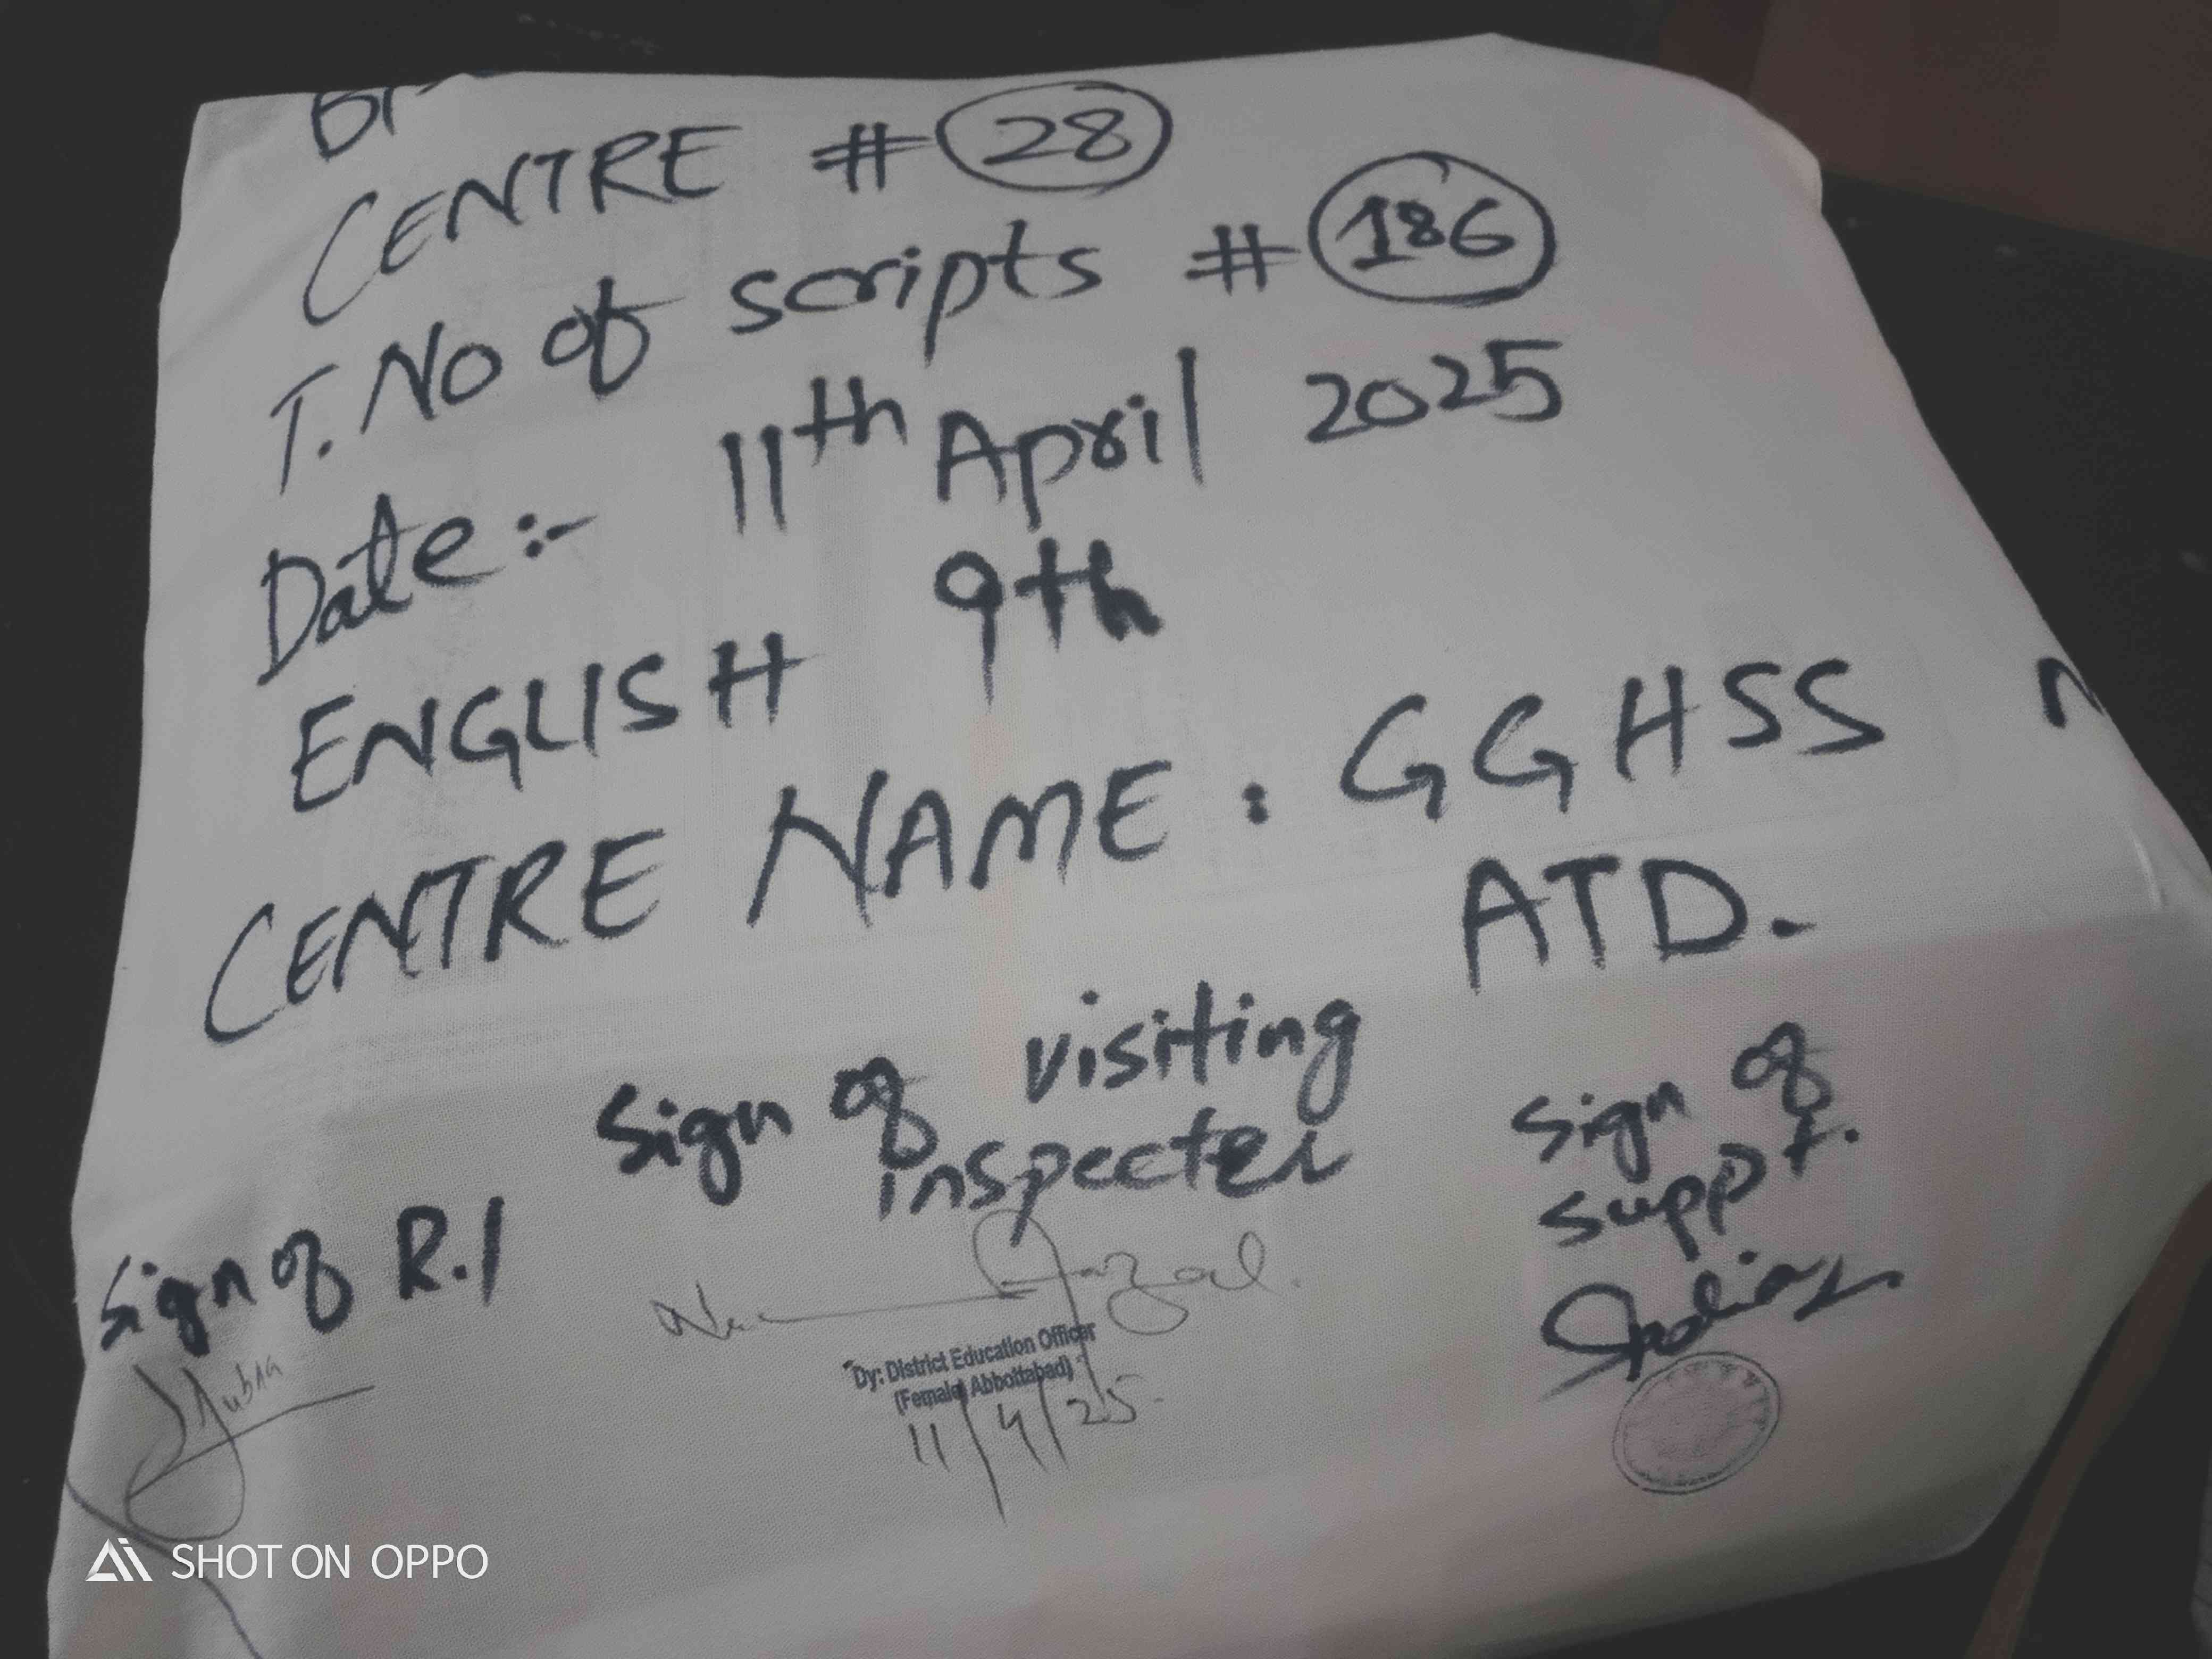 CENTRE # 28
T. No of scripts # 186
Date:- 11th April 2025
ENGLISH 9th
CENTRE NAME: GGHSS
ATD.
Sign of R.I
Sign of visiting
inspecter
Sign of
suppt.
Fazal.
Dy: District Education Officer
(Female) Abbottabad)
11/4/25
SHOT ON OPPO